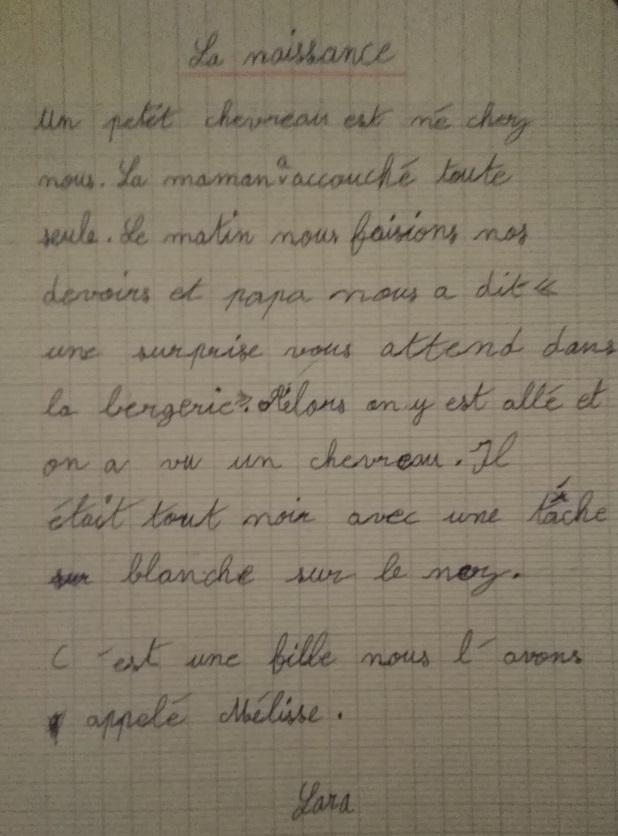 La naissance
Un petit chevreau est né chez
nous. La maman a accouché toute
seule. Le matin nous faisions nos
devoirs et papa nous a dit «
une surprise vous attend dans
la bergerie ». Alors on y est allé et
on a vu un chevreau. Il
était tout noir avec une tâche
blanche sur le nez.
C'est une fille nous l'avons
appelé Mélisse.
Lara